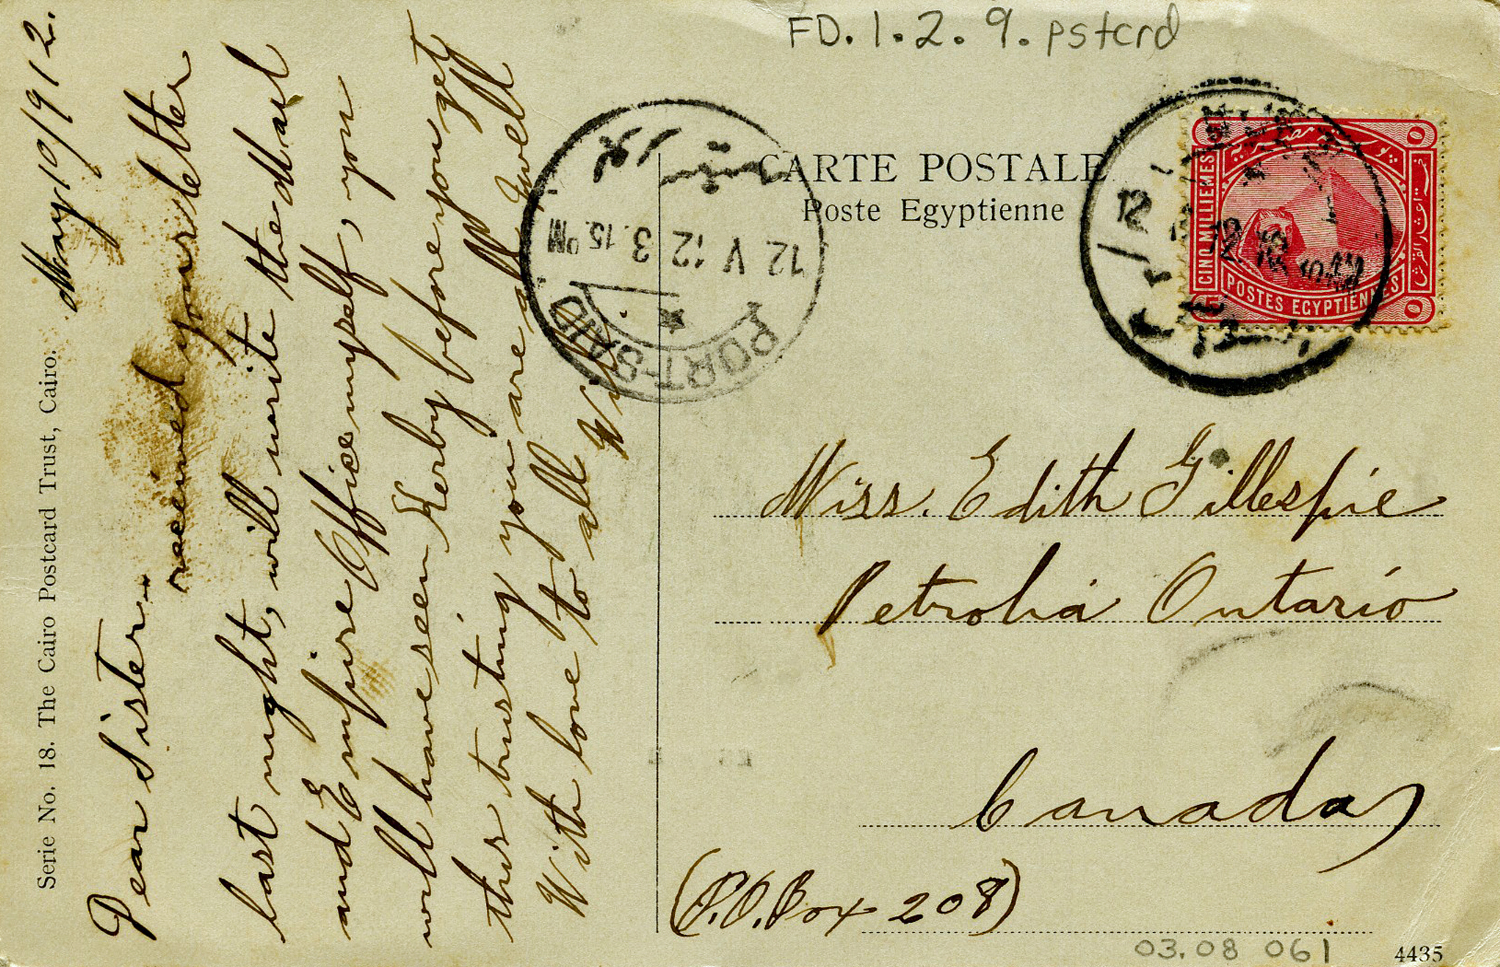 FD.1.2.9.pstcrd
CARTE POSTALE
Poste Egyptienne
Serie No. 18. The Cairo Postcard Trust, Cairo.
May 10/912.
Dear Sister-
received your letter
last night, will write the
and Empire Office myself, you
will have seen Kerby before you get
this trusting you are all well
With love to all
Will
PORT-SAID
12 V 12 3.15 PM
12
CINQ MILLIEMES
POSTES EGYPTIENNES
Miss. Edith Gillespie
Petrolia Ontario
Canada
(P.O. Box 208)
03.08 061
4435